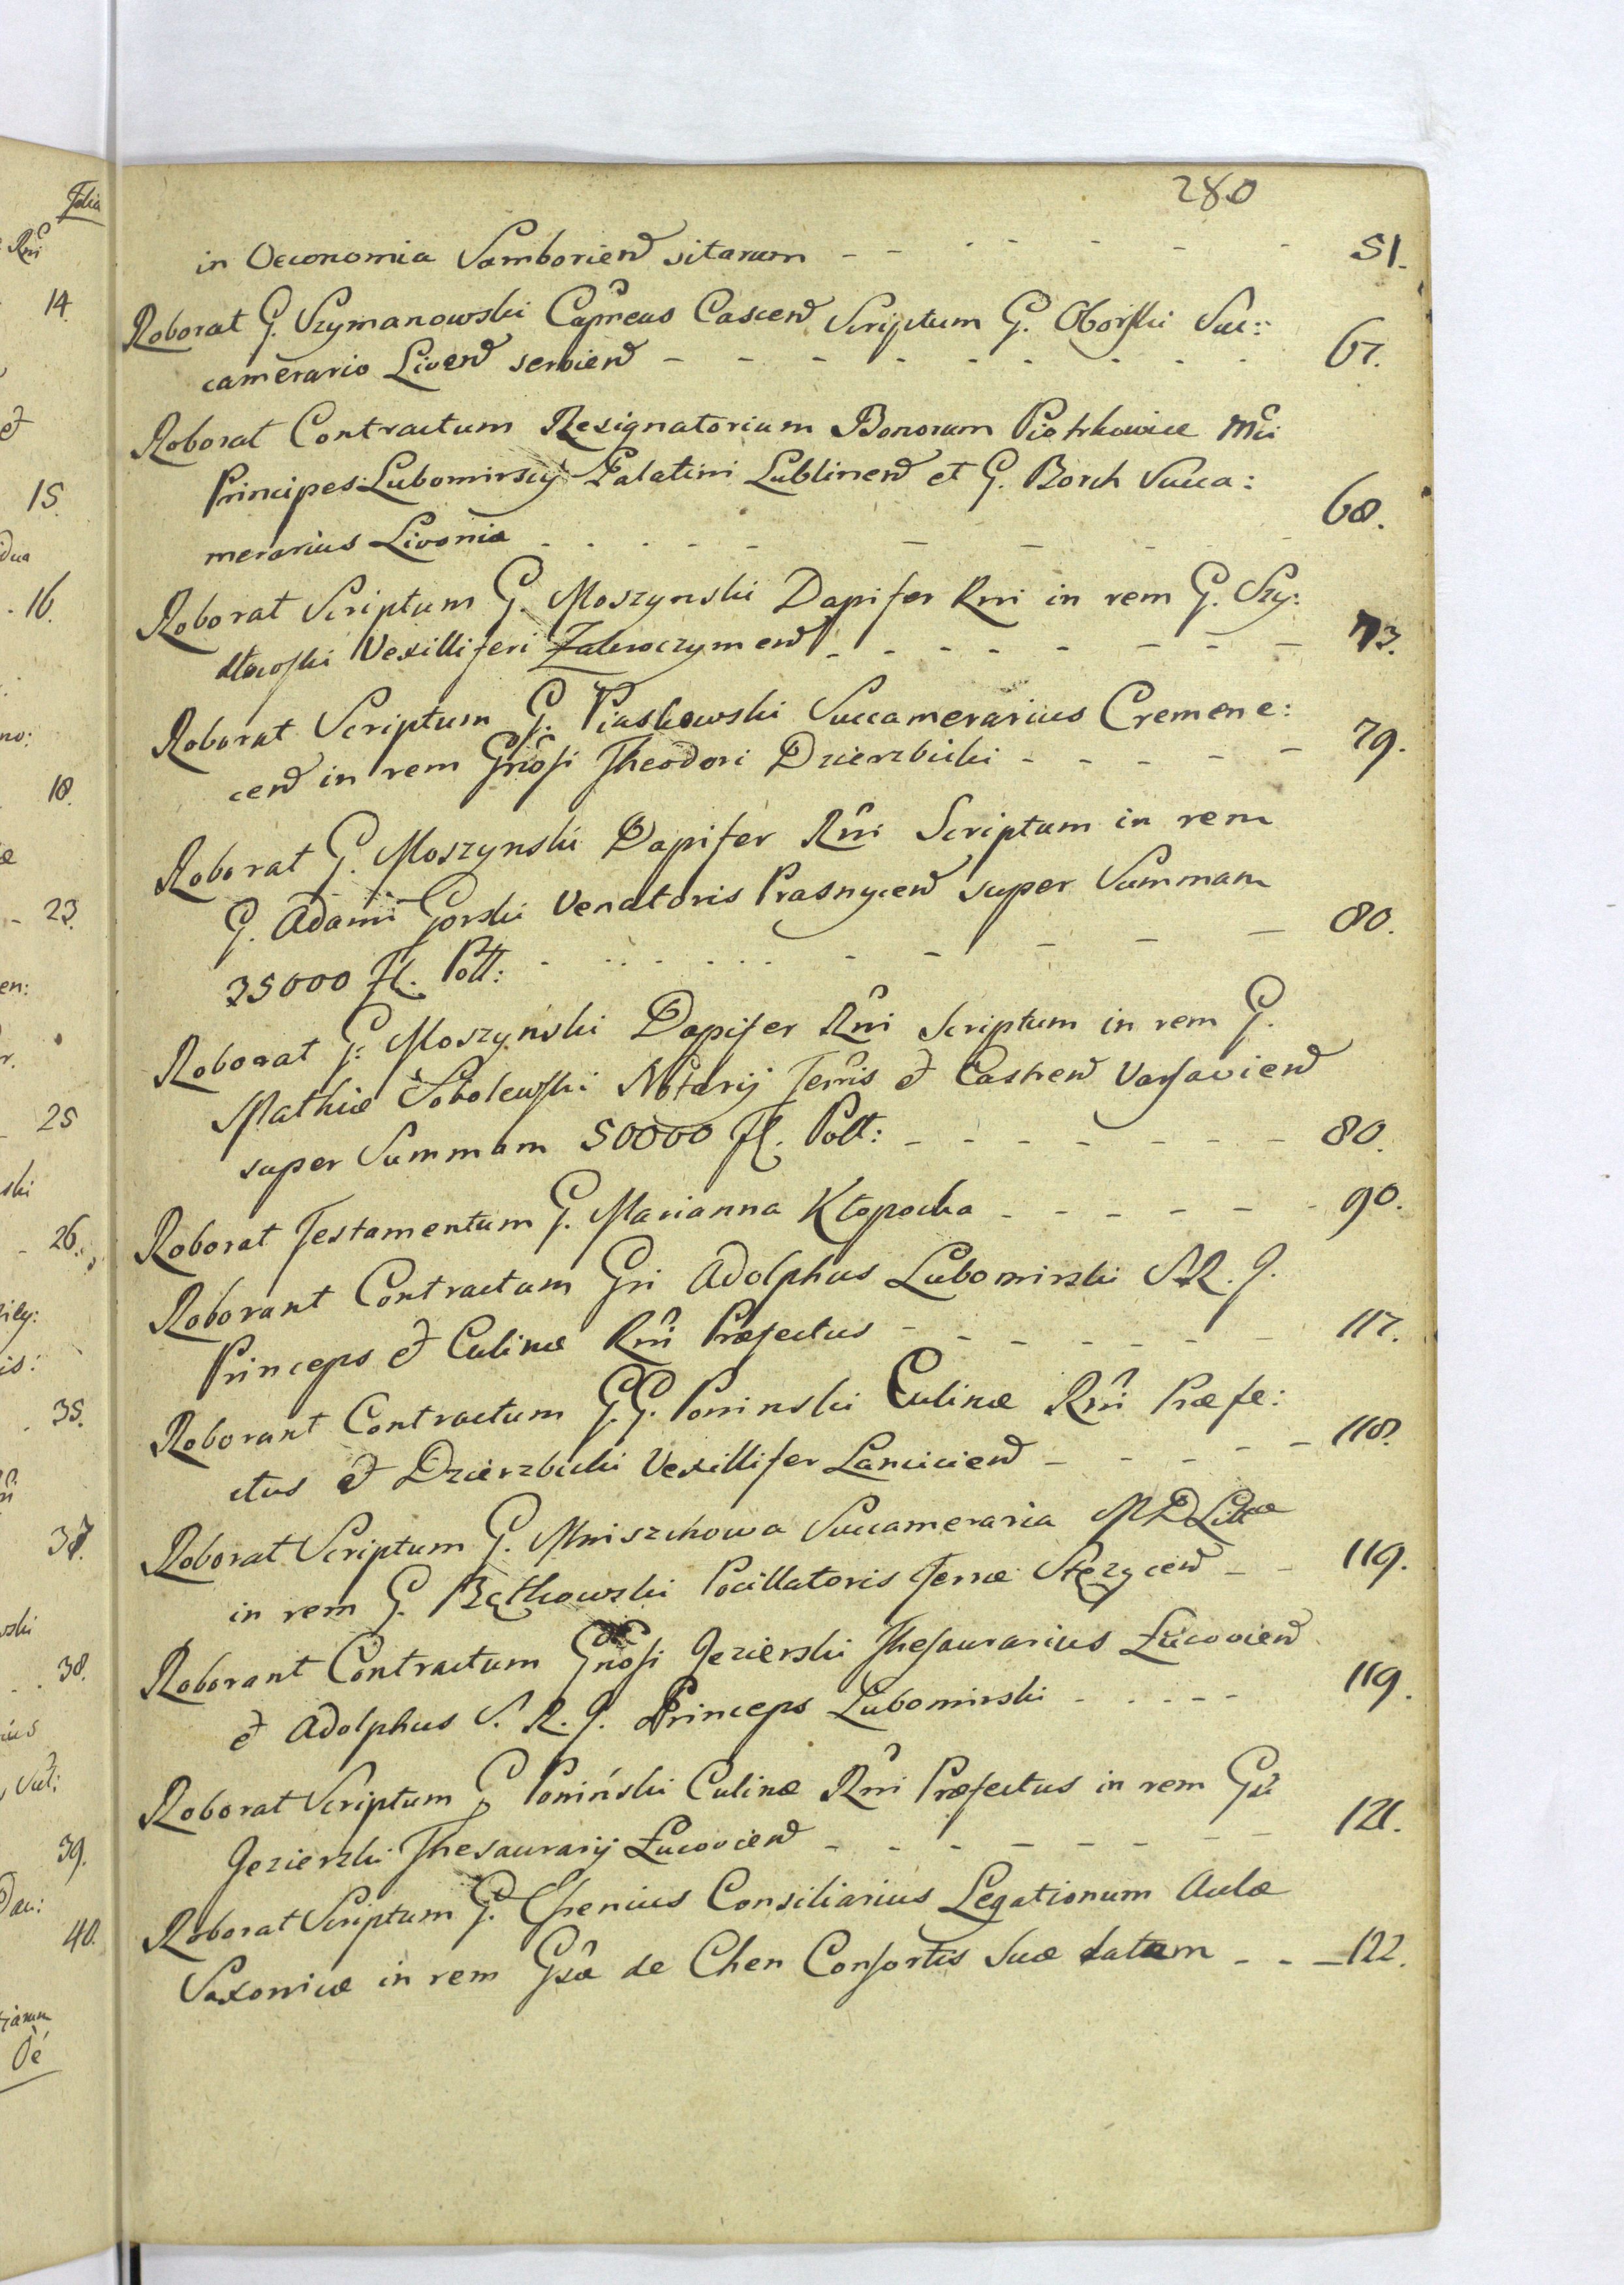 280
in Oeconomia Samborien sitarum - - - - - - - 51.
Roborat G. Szymanowski Capneus Cascen Scriptum G. Oborski Suc:
camerario Liven servien - - - - - - - - - 67.
Roborat Contractum Resignatorium Bonorum Piotrkowice Mci
Principes Lubomirscij Palatini Lublinen et G. Borch Succa:
merarius Livonia - - - - - - - - 68.
Roborat Scriptum G. Moszynski Dapifer Rni in rem G. Szy:
dłowski Vexilliferi Zakroczymen - - - - - - - - 73.
Roborat Scriptum G. Piaskowski Succamerarius Cremene:
cen in rem Gnosi Theodori Dzierzbicki - - - - - 79.
Roborat G. Moszynski Dapifer Rni Scriptum in rem
G. Adami Gorski Venatoris Prasnycen super Summam
35000 Fl. Poll: - - - - - - - - - 80.
Roborat G. Moszyński Dapifer Rni Scriptum in rem G.
Mathiæ Sobolewski Notarij Terris et Castren Varsavien
super Summam 50000 Fl. Poll: - - - - - - - 80.
Roborat Testamentum G. Marianna Kłopocka - - - - - - 90.
Roborant Contractum Gri Adolphus Lubomirski S.R.J.
Princeps et Culinæ Rni Præfectus - - - - - - - 117.
Roborant Contractum G.G. Poninski Culinæ Rni Præfe:
ctus et Dzierzbicki Vexillifer Lancicien - - - - - 118.
Roborat Scriptum G. Mniszchowa Succameraria M D Littæ
in rem G. Bątkowski Pocillatoris Terræ Stęzycen - - 119.
Roborant Contractum Gnosi Jezierski Thesaurarius Łucovien
et Adolphus S. R. J. Princeps Lubomirski - - - - - 119.
Roborat Scriptum G Poniński Culinæ Rni Præfectus in rem Gsi
Jezierski Thesaurarij Łucovien - - - - - - - - 121.
Roborat Scriptum G. Essenius Consiliarius Legationum Aulæ
Saxonicæ in rem Gsæ de Chen Consortis suæ datum - - - 122.
Folia
Rni
14.
15.
16.
18.
23.
25
26.
35.
37.
38.
39.
40.